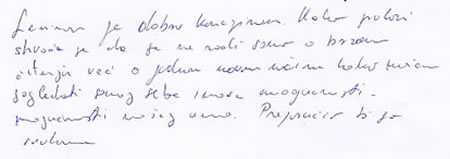 Seminar je dobro koncipiran. Kako polazi
shvaća je da se ne radi samo o brzom
čitanju već o jednom novom načinu kako
sagledati samog sebe i nove mogućnosti.
mogućnosti našeg uma. Preporučio bi ga
svakome